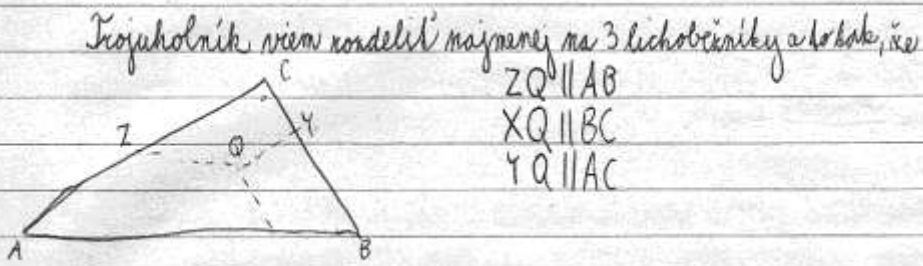 Trojuholník viem rozdeliť najmenej na 3 lichobežníky a to tak, že
ZQ || AB
XQ || BC
YQ || AC
C
Y
Z
Q
A
B